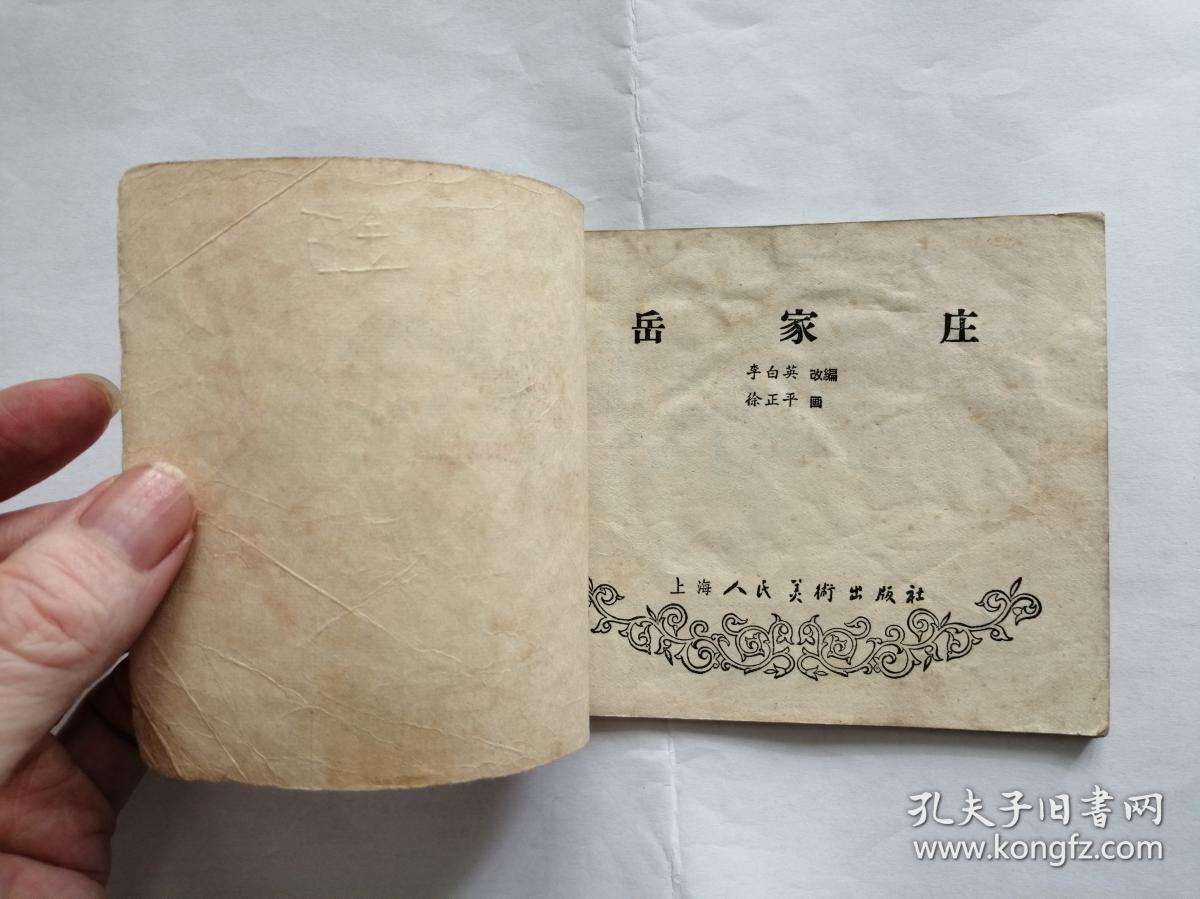 岳家庄
李白英 改編
徐正平 畫
上海人民美術出版社
孔夫子旧书网
www.kongfz.com